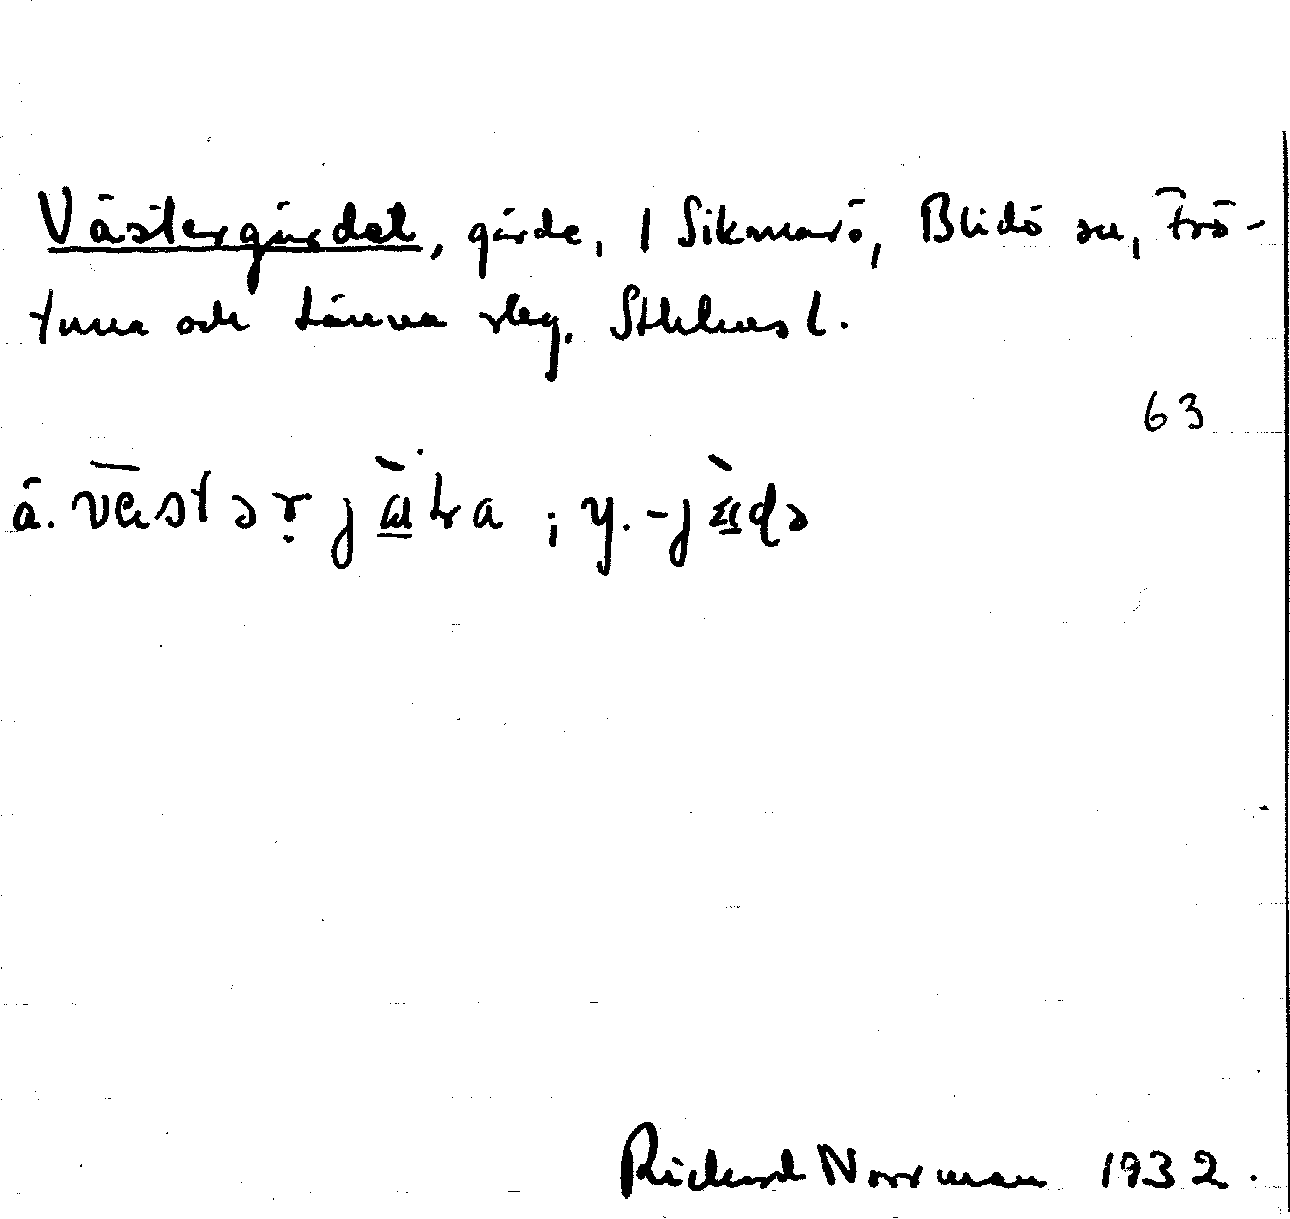 Västergärdet, gärde, 1 Sikmarö, Blidö sn, Frö-
tuna och Länna slag. Sthlms l.
63
ä. västər ; y. -
Rickard Norrman 1932.